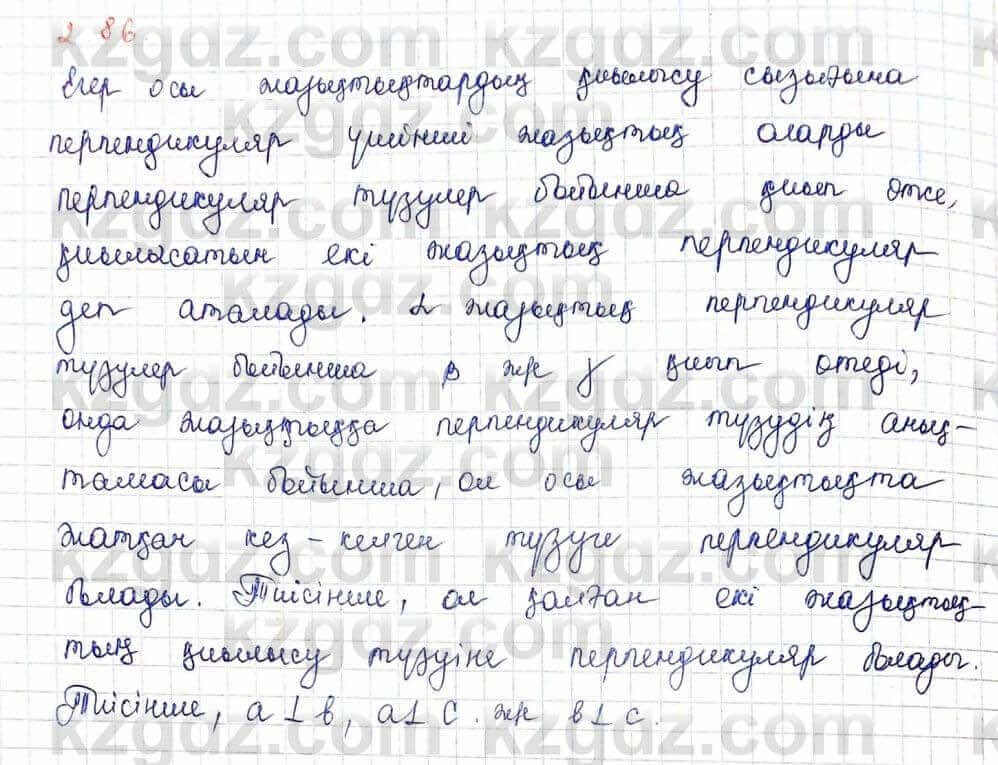 2 86
Егер осы жазықтықтардың қиылысу сызығына
перпендикуляр үшінші жазықтық оларды
перпендикуляр түзулер бойынша қиып өтсе,
қиылысатын екі жазықтық перпендикуляр
деп аталады. α жазықтық перпендикуляр
түзулер бойынша β ж/е γ қиып өтеді,
онда жазықтыққа перпендикуляр түзудің анық-
тамасы бойынша, ол осы жазықтықта
жатқан кез-келген түзуге перпендикуляр
болады. Тиісінше, ол қалған екі жазықтық-
тың қиылысу түзуіне перпендикуляр болады.
Тиісінше, a⊥b, a⊥c. ж/е b⊥c.
kzgdz.com